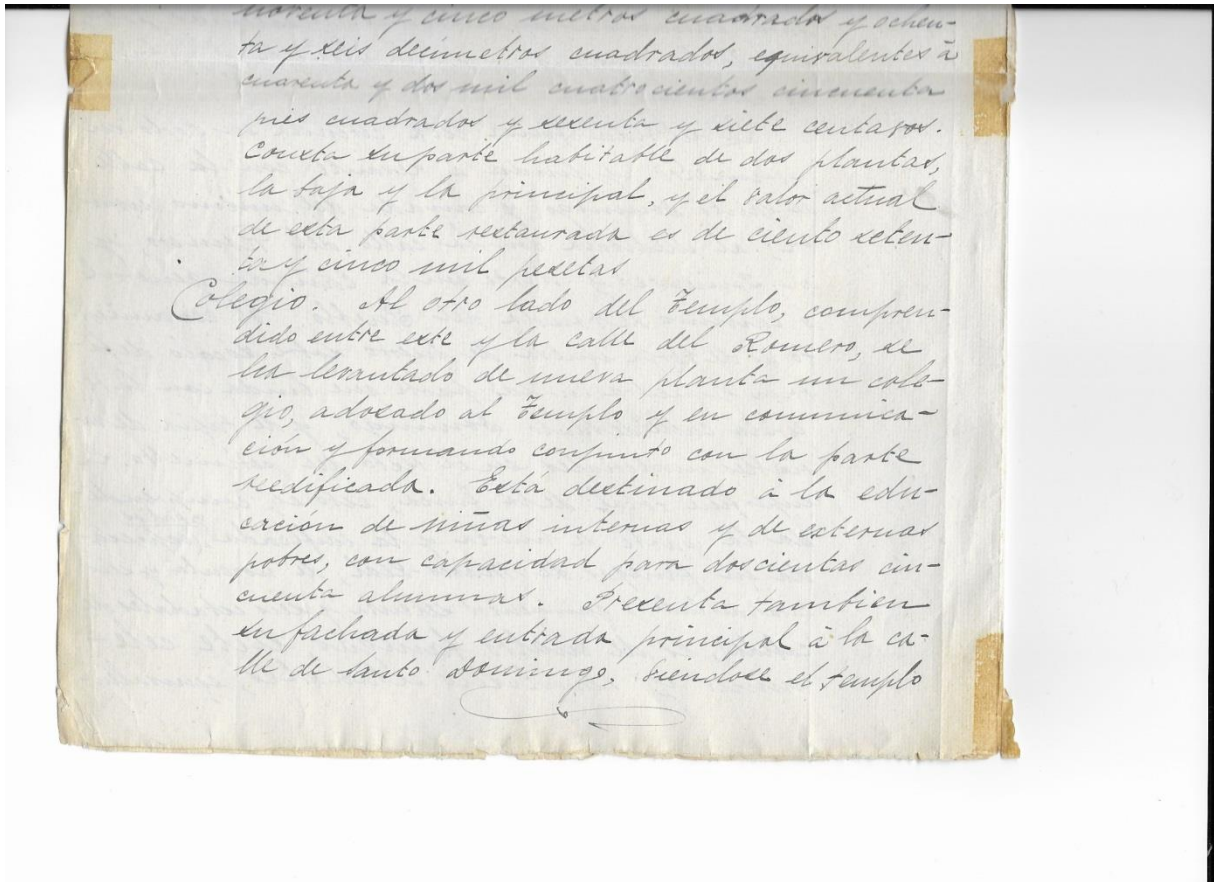 noventa y cinco metros cuadrados y ochen-
ta y seis decimetros cuadrados, equivalentes à
cuarenta y dos mil cuatrocientos cincuenta
pies cuadrados y sesenta y siete centavos.
Consta su parte habitable de dos plantas,
la baja y la principal, y el valor actual
de esta parte restaurada es de ciento seten-
ta y cinco mil pesetas
Colegio. Al otro lado del Templo, compren-
dido entre este y la calle del Romero, se
ha levantado de nueva planta un cole-
gio, adosado al Templo y en comunica-
ción y formando conjunto con la parte
reedificada. Está destinado à la edu-
cación de niñas internas y de externas
pobres, con capacidad para doscientas cin-
cuenta alumnas. Presenta tambien
su fachada y entrada principal à la ca-
lle de Santo Domingo, viendose el templo